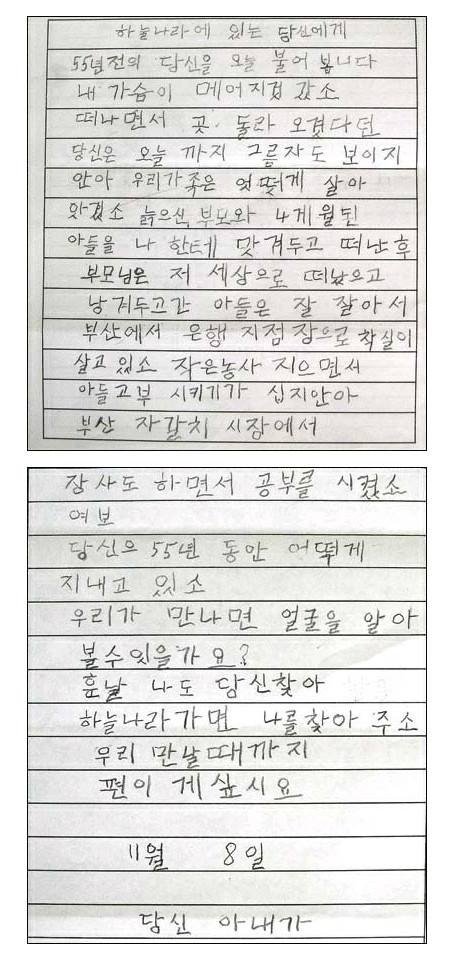 하늘나라에 있는 당신에게
55년전의 당신을 오늘 불어 봅니다
내 가슴이 메어지겁 갔소
떠나면서 곳. 돌라 오겠다던
당신은 오늘 까지 그름자도 보이지
안아 우리가족은 엇떻게 살아
와겠소 늙으신 부모와 4게월된
아들을 나 한테 맞겨두고 떠난후
부모님은 저 세상으로 떠났으고
낭겨두고간 아들은 잘 잘아서
부산에서 은행 지점장으로 착실이
살고 있소 작은농사 지으면서
아들고부 시키기가 십지안아
부산 자갈치 시장에서
장사도 하면서 공부를 시켰소
여보
당신으 55년 동안 어떻게
지내고 있소
우리가 만나면 얼굴을 알아
볼수잇을가요?
훈날 나도 당신찾아
하늘나라가면 나를찾아 주소
우리 만날때까지
편이 게싶시요
11월 8일
당신 아내가